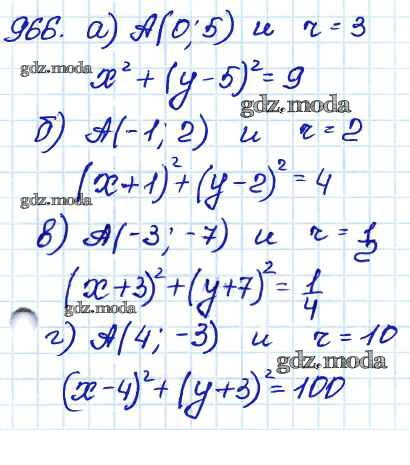 966. а) A(0; 5) и r = 3
gdz.moda
x² + (y - 5)² = 9
gdz.moda
б) A(-1; 2) и r = 2
(x+1)² + (y-2)² = 4
gdz.moda
в) A(-3; -7) и r = 1/2
(x+3)² + (y+7)² = 1/4
gdz.moda
г) A(4; -3) и r = 10
gdz.moda
(x-4)² + (y+3)² = 100